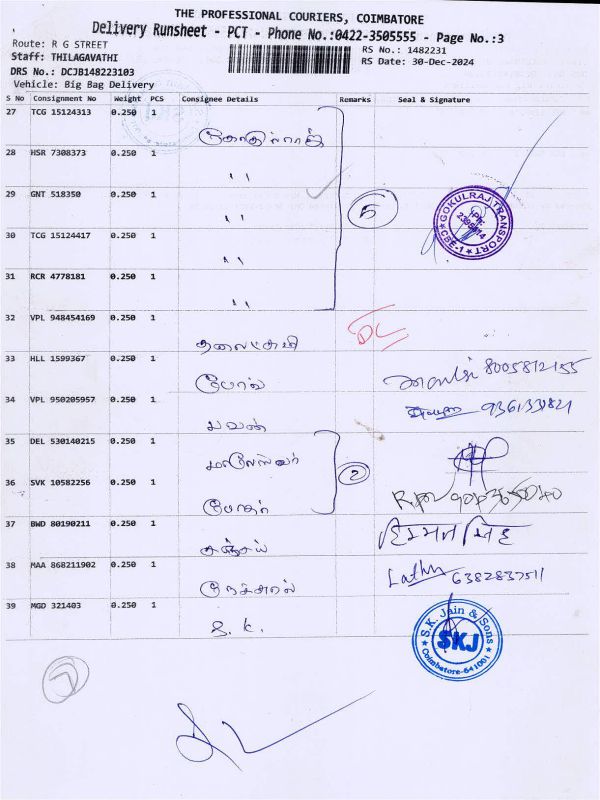 THE PROFESSIONAL COURIERS, COIMBATORE
Delivery Runsheet - PCT - Phone No.:0422-3505555 - Page No.:3
Route: R G STREET
RS No.: 1482231
Staff: THILAGAVATHI
RS Date: 30-Dec-2024
DRS No.: DCJB148223103
Vehicle: Big Bag Delivery
S No Consignment No Weight PCS Consignee Details Remarks Seal & Signature
27 TCG 15124313 0.250 1
கோகுல்ராஜ்
28 HSR 7308373 0.250 1
,,
29 GNT 518350 0.250 1
,,
5
GOKULRAJ TRANSPORT
CBE-1
30 TCG 15124417 0.250 1
,,
31 RCR 4778181 0.250 1
,,
32 VPL 948454169 0.250 1
DC
33 HLL 1599367 0.250 1
8005812155
34 VPL 950205957 0.250 1
பவன்
9361331821
35 DEL 530140215 0.250 1
2
36 SVK 10582256 0.250 1
37 BWD 80190211 0.250 1
சஞ்சய்
38 MAA 868211902 0.250 1
6382837511
39 MGD 321403 0.250 1
S. K.
S.K. Jain & Sons
SKJ
Coimbatore-641001
7